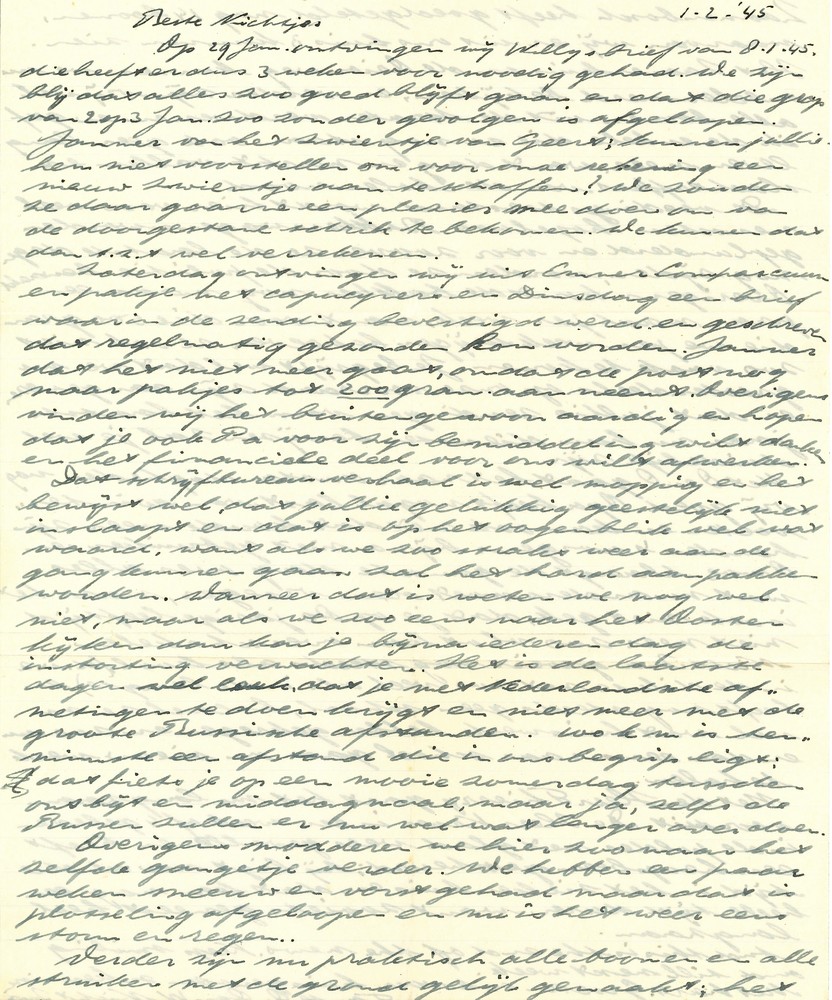 1-2-'45
Beste Nichtjes
Op 29 Jan. ontvingen wij Willy's brief van 8.1.45.
die heeft er dus 3 weken voor noodig gehad. We zijn
blij dat alles zoo goed blijft gaan en dat die grap
van 2 op 3 Jan. zoo zonder gevolgen is afgeloopen.
Jammer van het zwientje van Geert; kunnen jullie
hem niet voorstellen om voor onze rekening een
nieuw zwientje aan te schaffen? We zouden
ze daar gaarne een plezier mee doen om van
de doorgestane schrik te bekomen. We kunnen dat
dan t.z.t. wel verrekenen.
Zaterdag ontvingen wij uit Emmer Compascuum
een pakje met capucijners en Dinsdag een brief
waarin de zending bevestigd werd en geschreven
dat regelmatig gezonden kon worden. Jammer
dat het niet meer gaat, omdat de post nog
maar pakjes tot 200 gram aanneemt. Overigens
vinden wij het buitengewoon aardig en hopen
dat je ook Pa voor zijn bemiddeling wilt danken
en het financieele deel voor ons wilt afwerken.
Dat schrijfbureau verhaal is wel moppig en het
bewijst wel, dat jullie gelukkig geestelijk niet
inslaapt en dat is op het oogenblik wel wat
waard, want als we zoo straks weer aan de
gang kunnen gaan zal het hard aanpakken
worden. Wanneer dat is weten we nog wel
niet, maar als we zoo eens naar het Oosten
kijken dan kan je bijna iederen dag de
instorting verwachten. Het is de laatste
dagen wel leuk, dat je met Nederlandsche af-
metingen te doen krijgt en niet meer met de
groote Russische afstanden. 140 km is ten-
minste een afstand die in ons begrip ligt;
dat fiets je op een mooie zomerdag tusschen
ontbijt en middagmaal, maar ja, zelfs de
Russen zullen er nu wel wat langer over doen.
Overigens modderen we hier zoo naar het
zelfde gangetje verder. We hebben een paar
weken sneeuw en vorst gehad maar dat is
plotseling afgeloopen en nu is het weer eens
storm en regen..
Verder zijn nu praktisch alle boomen en alle
struiken met de grond gelijk gemaakt; het